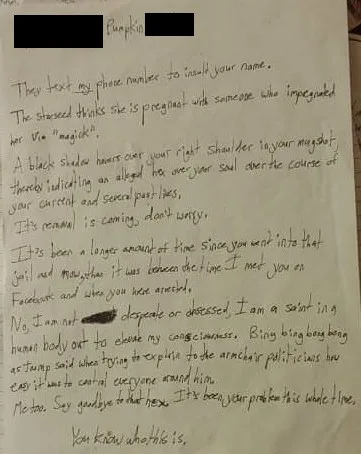 Pumpkin
They text my phone number to insult your name.
The starseed thinks she is pregnant with someone who impregnated
her via "magick".
A black shadow hovers over your right shoulder in your mugshot,
thereby indicating an alleged hex over your soul over the course of
your current and several past lives.
It's removal is coming, don't worry.
It's been a longer amount of time since you went into that
jail and now, than it was between the time I met you on
Facebook and when you were arrested.
No, I am not desperate or obsessed, I am a saint in a
human body out to elevate my consciousness. Bing bing bong bong
as Trump said when trying to explain to the armchair politicians how
easy it was to control everyone around him.
Me too. Say goodbye to that hex. It's been your problem this whole time.
You know who this is.